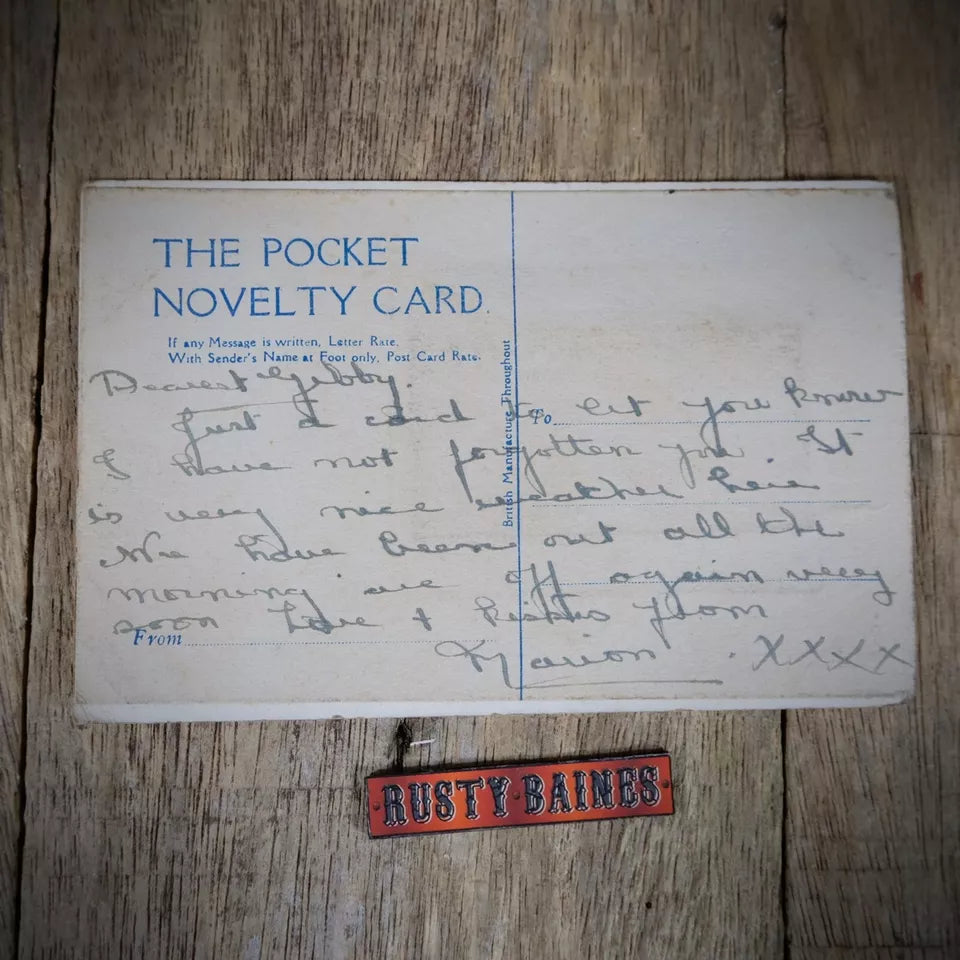 THE POCKET
NOVELTY CARD.
If any Message is written, Letter Rate.
With Sender's Name at Foot only, Post Card Rate.
British Manufacture Throughout
To
From
Dearest Gebby.
Just a card to let you know
I have not forgotten you. It
is very nice weather here
We have been out all the
morning are off again very
soon Love + kisses from
Marion . XXXX
RUSTY BAINES